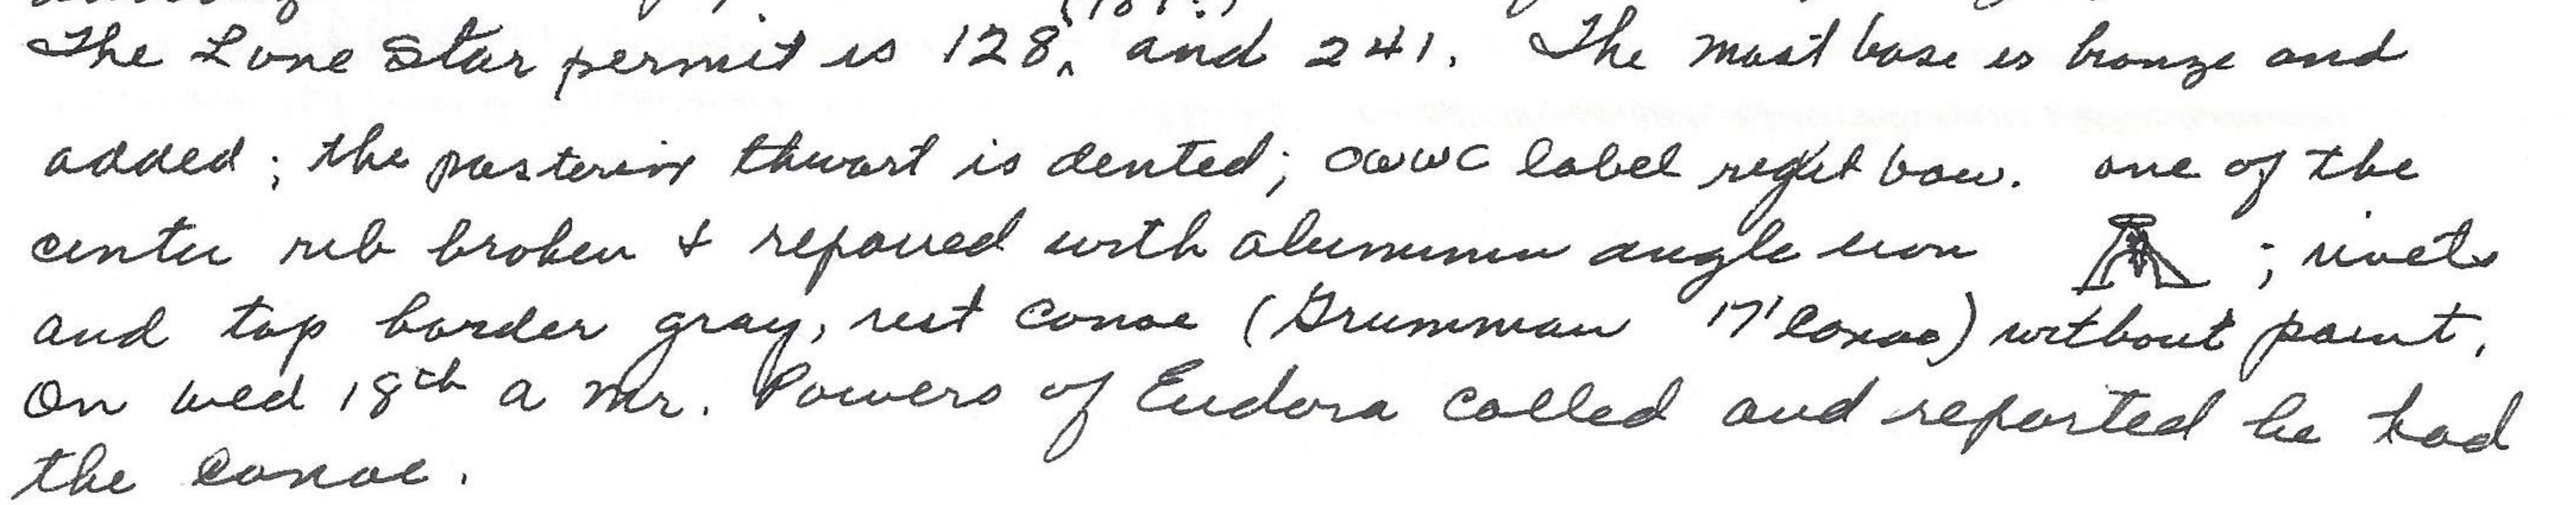 The Lone Star permit is 128, and 241. The mast base is bronze and
added; the posterior thwart is dented; OWWC label right bow. one of the
center rib broken & repaired with aluminum angle iron ; rivets
and top border gray, rest canoe (Grumman 17' Canoe) without paint.
On wed 18th a Mr. Powers of Eudora called and reported he had
the canoe.